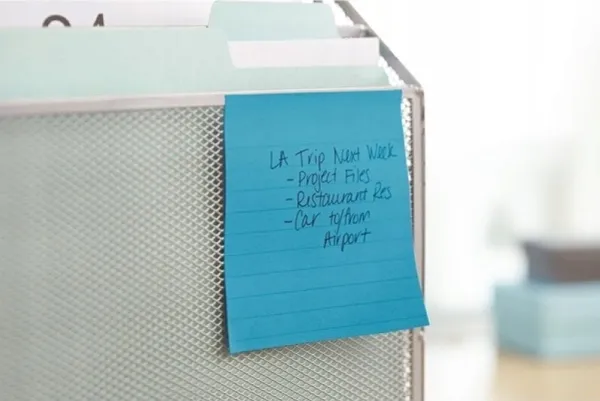 LA Trip Next Week
- Project Files
- Restaurant Res
- Car to/from
Airport